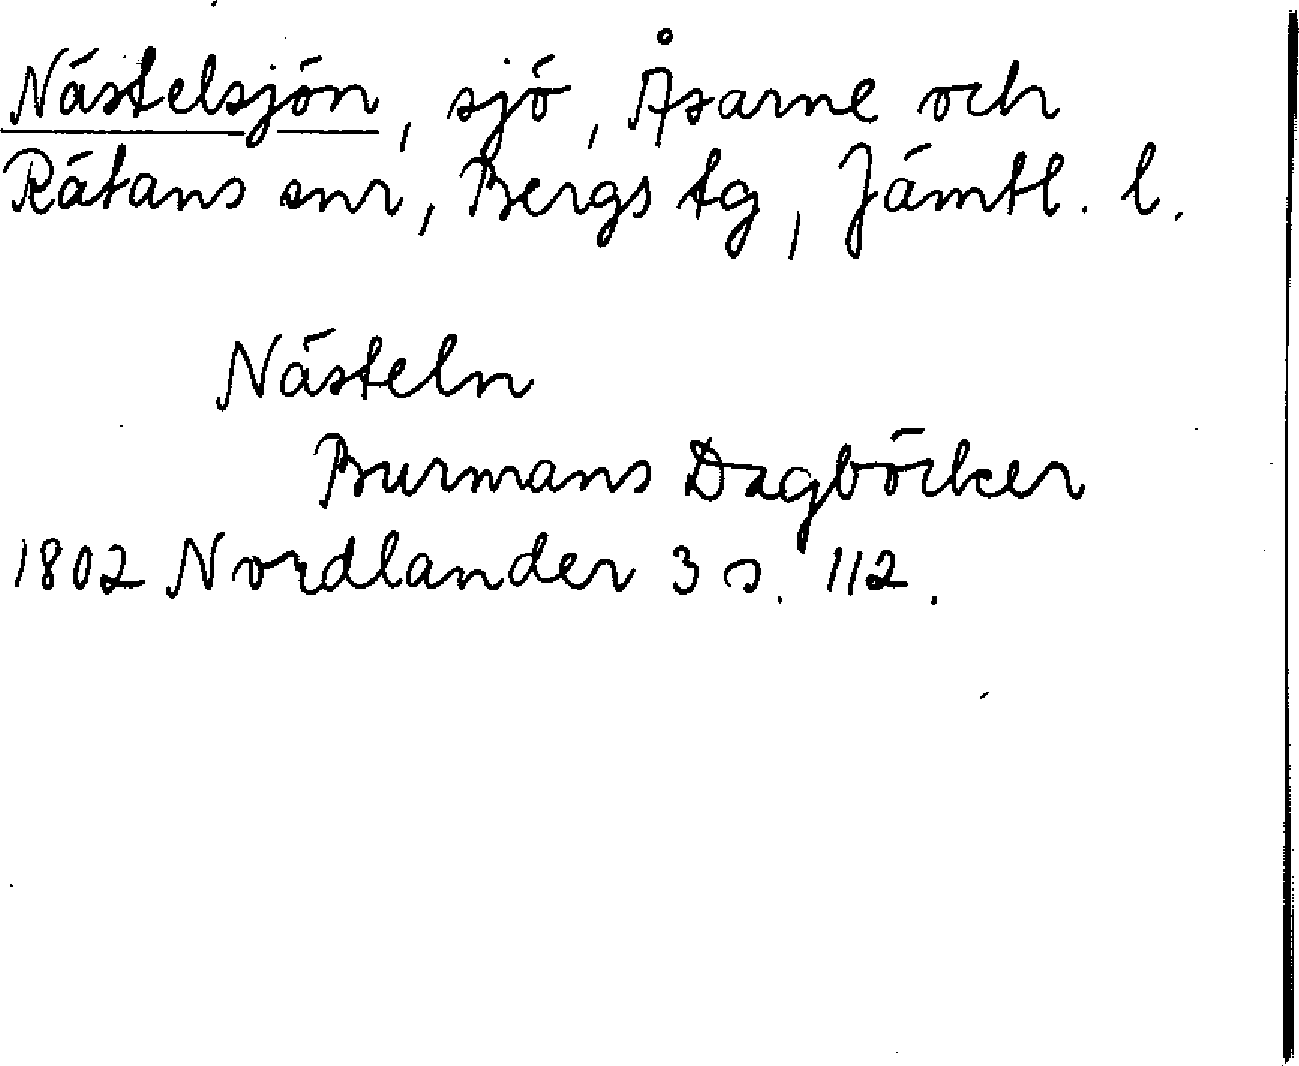 Nästelsjön, sjö, Åsarne och
Rätans snr, Bergs tg, Jämtl. l.
Nästeln
Burmans Dagböcker
1802 Nordlander 3 s. 112.